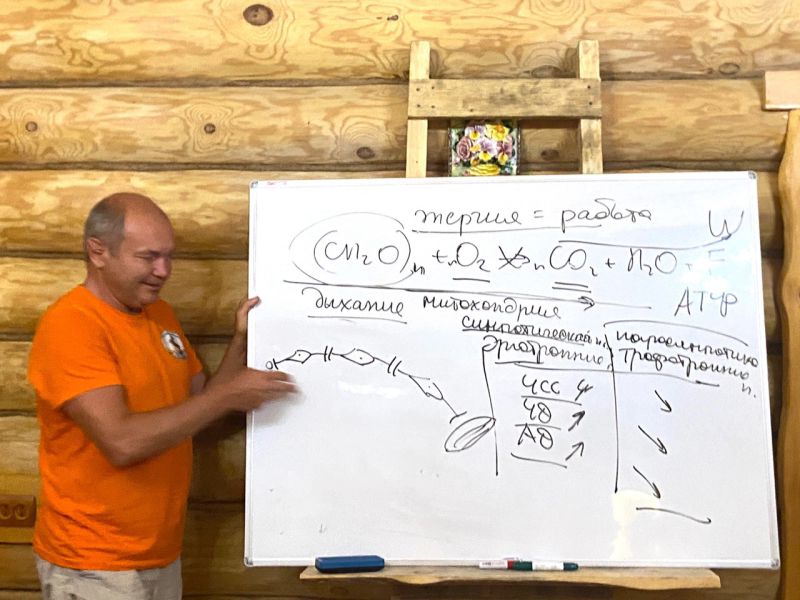 энергия = работа W
(CH₂O)ₙ + ₙO₂ ₙCO₂ + H₂O + E
дыхание митохондрия АТФ
симпатическая н.
Эрготропные
парасимпатика
Трофотропные н.
ЧСС
ЧД
АД